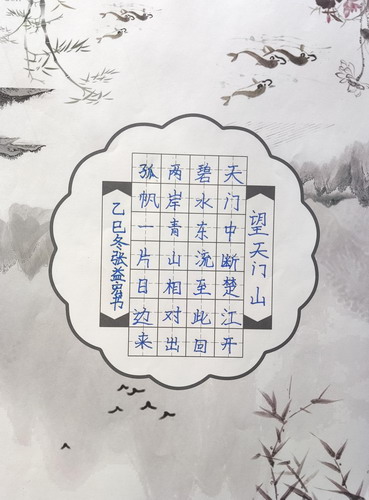 望天门山
天门中断楚江开
碧水东流至此回
两岸青山相对出
孤帆一片日边来
乙巳冬张益宛书